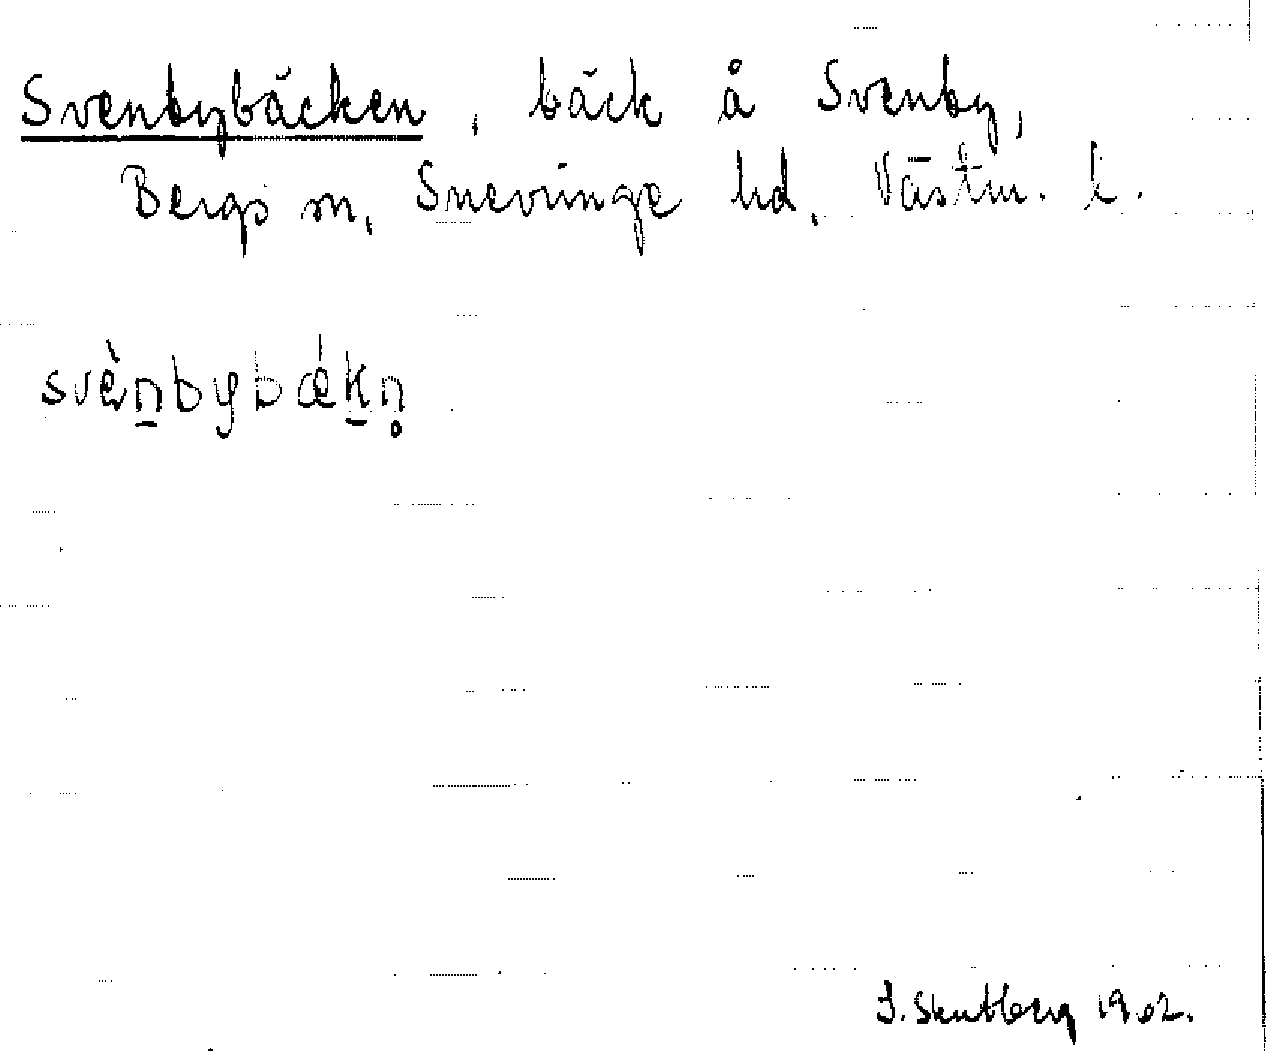 Svenbybäcken, bäck å Svenby,
Bergs sn, Snevringe hd, Västm. l.
svènbybǽkn̥
J. Skutberg 1902.